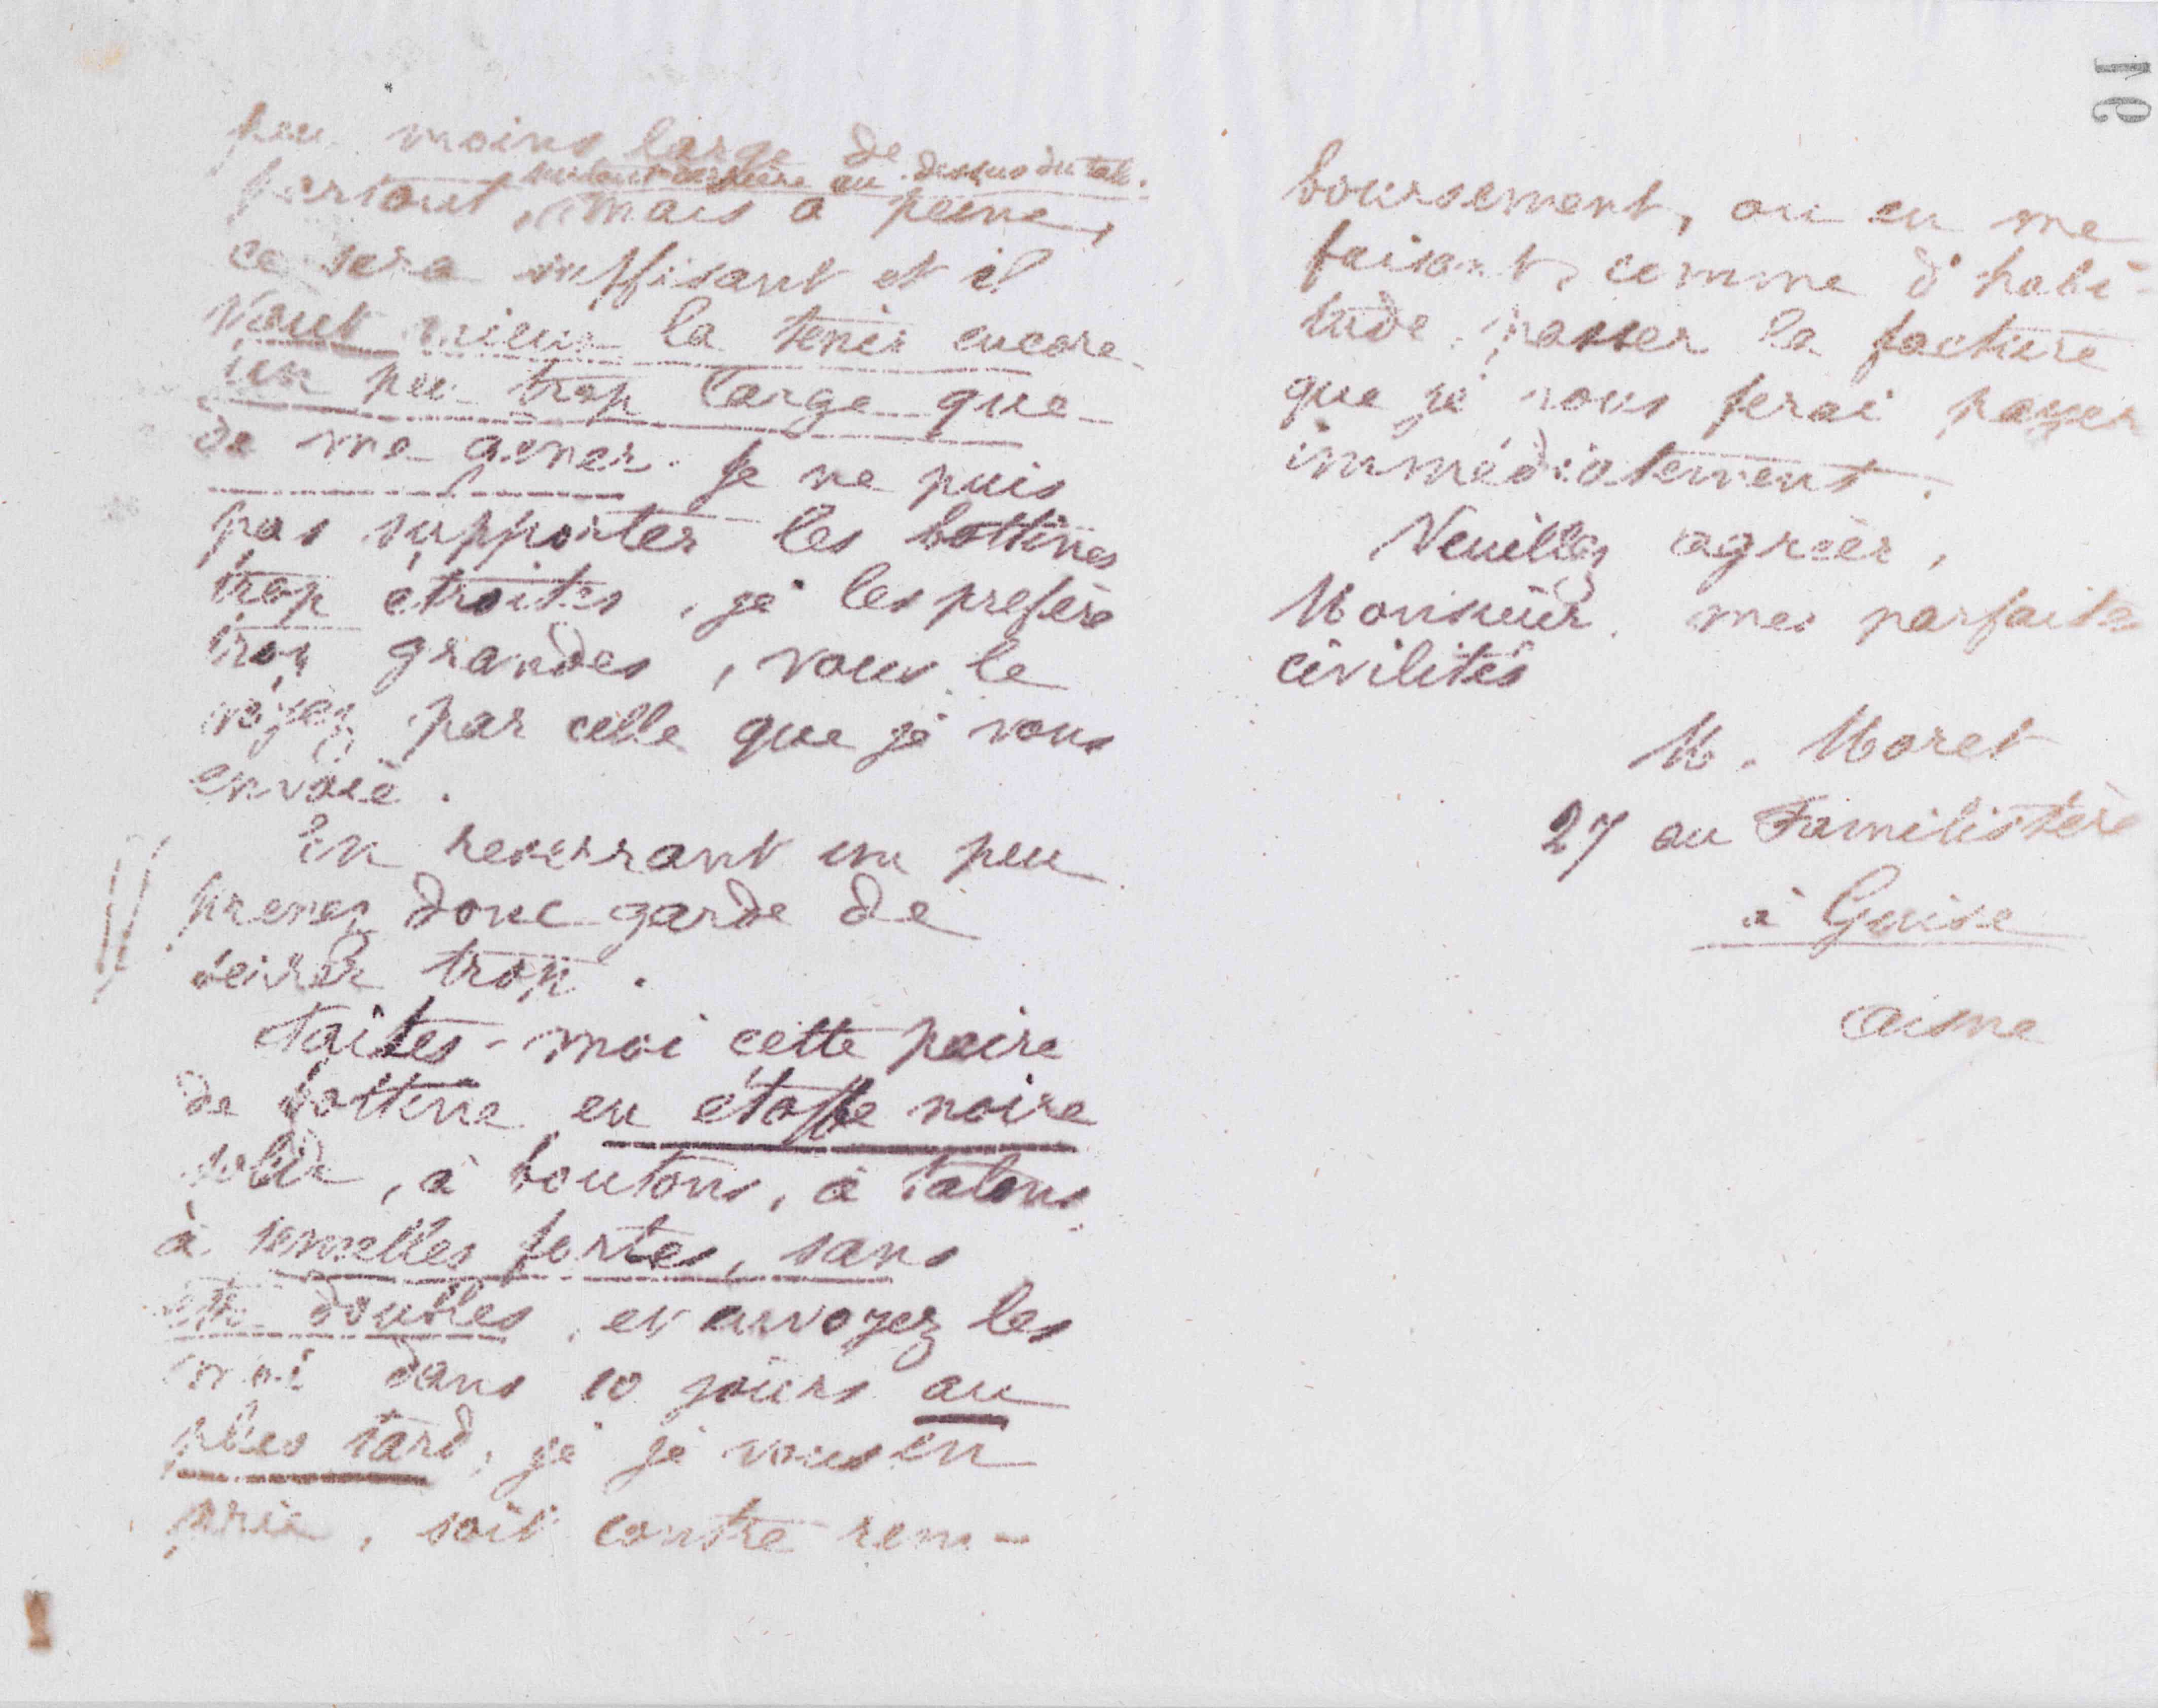 peu moins large de
surtout derrière au-dessus du talon.
partout, mais à peine,
ce sera suffisant et il
vaut mieux la tenir encore
un peu trop large que
de me gêner. Je ne puis
pas supporter les bottines
trop étroites, je les prefère
trop grandes, vous le
voyez par celle que je vous
envoie.
En resserrant un peu
prenez donc garde de
serrer trop.
Faites-moi cette paire
de bottine en étoffe noire
solide, à boutons, à talons
à semelles fortes, sans
être doubles, et envoyez les
moi dans 10 jours au
plus tard, je je vous en
prie, soit contre rem-
boursement, ou en me
faisant, comme d'habi-
tude, passer la facture
que je vous ferai payer
immédiatement.
Veuillez agréer,
Monsieur, mes parfaites
civilités
M. Moret
27 au Familistère
à Guise
Aisne